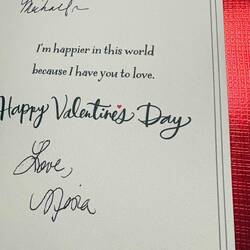 I'm happier in this world
because I have you to love.
Happy Valentine's Day
Love,